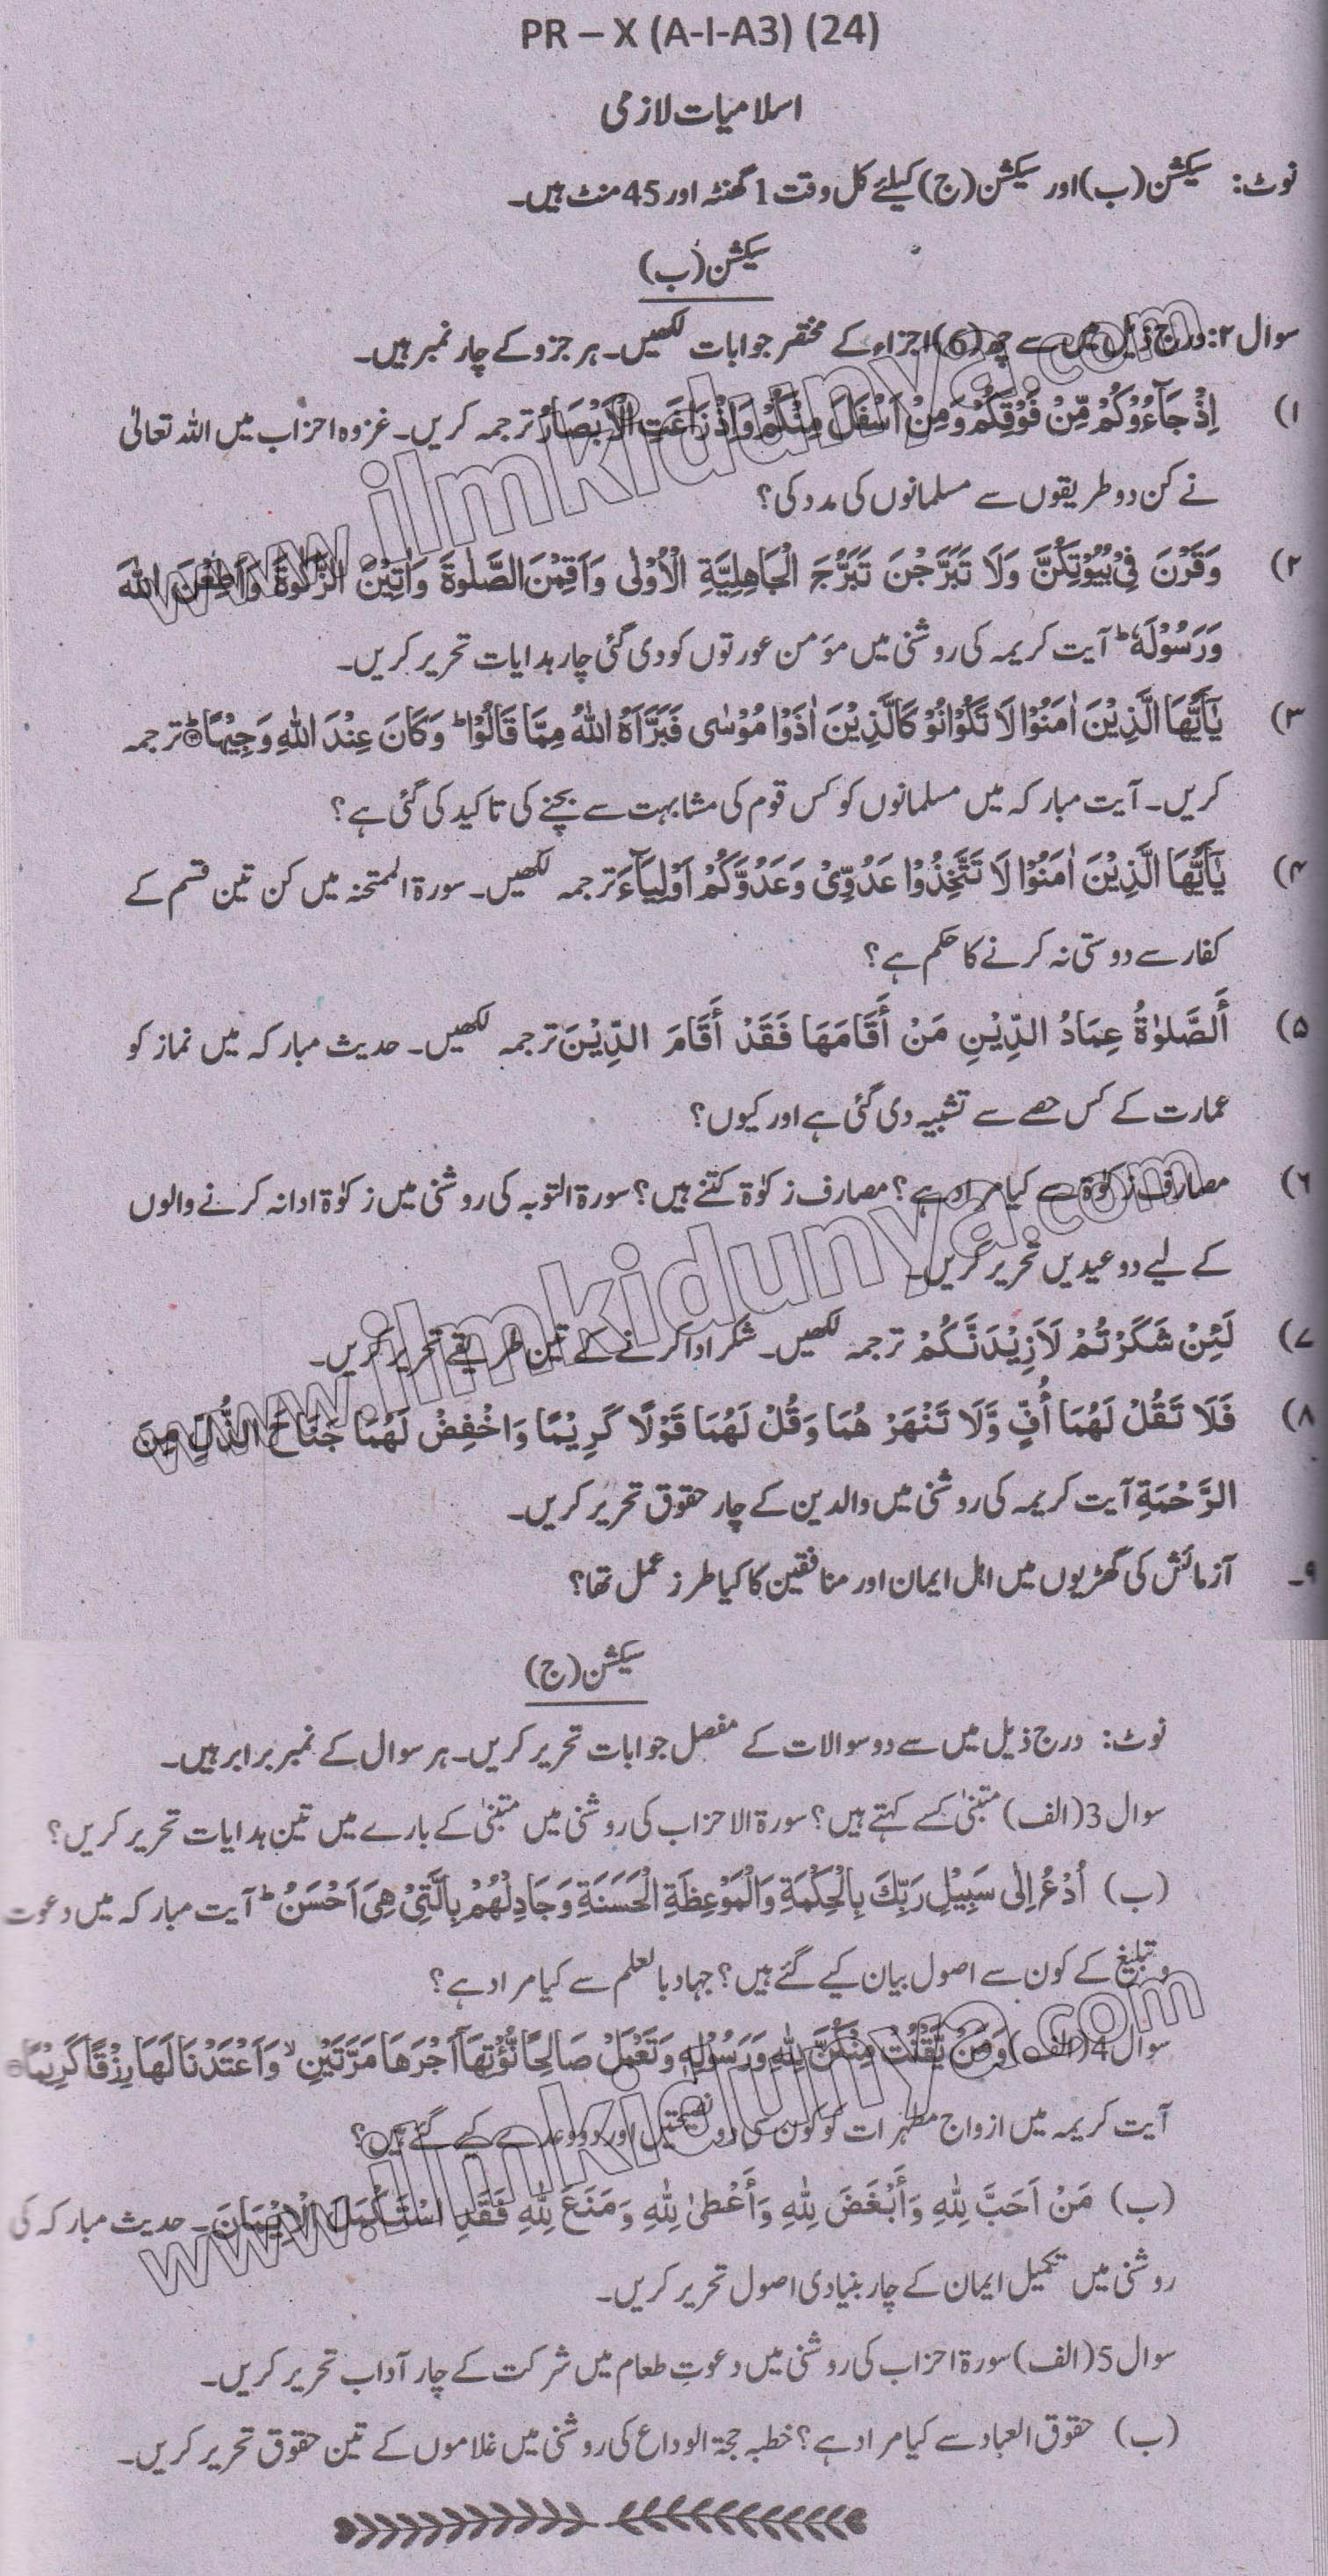 PR – X (A-I-A3) (24)
اسلامیات لازمی
نوٹ: سیکشن (ب) اور سیکشن (ج) کیلئے کل وقت 1 گھنٹہ اور 45 منٹ ہیں۔
سیکشن (ب)
سوال ۲: درج ذیل میں سے چھ (6) اجزاء کے مختصر جوابات لکھیں۔ ہر جزو کے چار نمبر ہیں۔
۱) اِذْ جَآءُوْكُمْ مِّنْ فَوْقِكُمْ وَمِنْ اَسْفَلَ مِنْكُمْ وَاِذْ زَاغَتِ الْاَبْصَارُ ترجمہ کریں۔ غزوہ احزاب میں اللہ تعالیٰ
نے کن دو طریقوں سے مسلمانوں کی مدد کی؟
۲) وَقَرْنَ فِیْ بُیُوْتِكُنَّ وَلَا تَبَرَّجْنَ تَبَرُّجَ الْجَاهِلِیَّةِ الْاُوْلٰی وَاَقِمْنَ الصَّلٰوةَ وَاٰتِیْنَ الزَّكٰوةَ وَاَطِعْنَ اللّٰهَ
وَرَسُوْلَهٗ ؕ آیت کریمہ کی روشنی میں مؤمن عورتوں کو دی گئی چار ہدایات تحریر کریں۔
۳) یٰۤاَیُّهَا الَّذِیْنَ اٰمَنُوْا لَا تَكُوْنُوْا كَالَّذِیْنَ اٰذَوْا مُوْسٰی فَبَرَّاَهُ اللّٰهُ مِمَّا قَالُوْا ؕ وَكَانَ عِنْدَ اللّٰهِ وَجِیْهًا ؕ ترجمہ
کریں۔ آیت مبارکہ میں مسلمانوں کو کس قوم کی مشابہت سے بچنے کی تاکید کی گئی ہے؟
۴) یٰۤاَیُّهَا الَّذِیْنَ اٰمَنُوْا لَا تَتَّخِذُوْا عَدُوِّیْ وَعَدُوَّكُمْ اَوْلِیَآءَ ترجمہ لکھیں۔ سورۃ الممتحنہ میں کن تین قسم کے
کفار سے دوستی نہ کرنے کا حکم ہے؟
۵) أَلصَّلٰوةُ عِمَادُ الدِّیْنِ مَنْ أَقَامَهَا فَقَدْ أَقَامَ الدِّیْنَ ترجمہ لکھیں۔ حدیث مبارکہ میں نماز کو
عمارت کے کس حصے سے تشبیہ دی گئی ہے اور کیوں؟
۶) مصارف زکوٰۃ سے کیا مراد ہے؟ مصارف زکوٰۃ کتنے ہیں؟ سورۃ التوبہ کی روشنی میں زکوٰۃ ادا نہ کرنے والوں
کے لیے دو عیدیں تحریر کریں۔
۷) لَئِنْ شَكَرْتُمْ لَاَزِیْدَنَّكُمْ ترجمہ لکھیں۔ شکر ادا کرنے کے تین طریقے تحریر کریں۔
۸) فَلَا تَقُلْ لَهُمَا أُفٍّ وَّلَا تَنْهَرْ هُمَا وَقُلْ لَهُمَا قَوْلًا كَرِیْمًا وَاخْفِضْ لَهُمَا جَنَاحَ الذُّلِّ مِنَ
الرَّحْمَةِ آیت کریمہ کی روشنی میں والدین کے چار حقوق تحریر کریں۔
۹۔ آزمائش کی گھڑیوں میں اہل ایمان اور منافقین کا کیا طرز عمل تھا؟
سیکشن (ج)
نوٹ: درج ذیل میں سے دو سوالات کے مفصل جوابات تحریر کریں۔ ہر سوال کے نمبر برابر ہیں۔
سوال 3 (الف) متبنیٰ کسے کہتے ہیں؟ سورۃ الاحزاب کی روشنی میں متبنیٰ کے بارے میں تین ہدایات تحریر کریں؟
(ب) اُدْعُ اِلٰی سَبِیْلِ رَبِّكَ بِالْحِكْمَةِ وَالْمَوْعِظَةِ الْحَسَنَةِ وَجَادِلْهُمْ بِالَّتِیْ هِیَ اَحْسَنُ ؕ آیت مبارکہ میں دعوت
و تبلیغ کے کون سے اصول بیان کیے گئے ہیں؟ جہاد بالعلم سے کیا مراد ہے؟
سوال 4 (الف) وَمَنْ یَّقْنُتْ مِنْكُنَّ لِلّٰهِ وَرَسُوْلِهٖ وَتَعْمَلْ صَالِحًا نُّؤْتِهَاۤ اَجْرَهَا مَرَّتَیْنِ ۙ وَاَعْتَدْنَا لَهَا رِزْقًا كَرِیْمًا
آیت کریمہ میں ازواج مطہرات کو کون سی دو نصیحتیں اور دو وعدے کیے گئے ہیں؟
(ب) مَنْ اَحَبَّ لِلّٰهِ وَأَبْغَضَ لِلّٰهِ وَأَعْطٰی لِلّٰهِ وَمَنَعَ لِلّٰهِ فَقَدِ اسْتَكْمَلَ الْاِیْمَانَ۔ حدیث مبارکہ کی
روشنی میں تکمیل ایمان کے چار بنیادی اصول تحریر کریں۔
سوال 5 (الف) سورۃ احزاب کی روشنی میں دعوتِ طعام میں شرکت کے چار آداب تحریر کریں۔
(ب) حقوق العباد سے کیا مراد ہے؟ خطبہ حجۃ الوداع کی روشنی میں غلاموں کے تین حقوق تحریر کریں۔
www.ilmkidunya.com
www.ilmkidunya.com
www.ilmkidunya.com